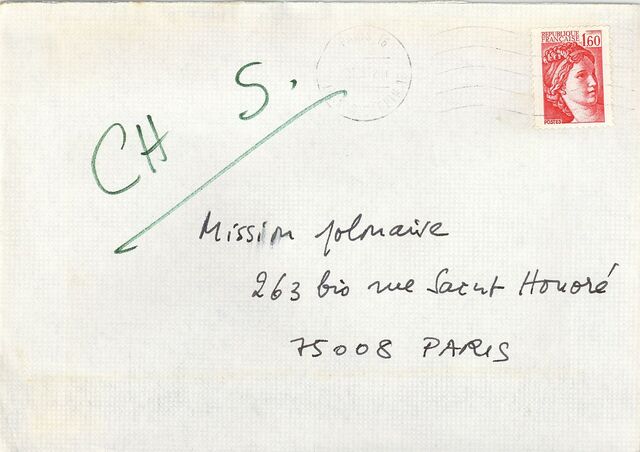 REPUBLIQUE
FRANÇAISE 1,60
POSTES
CH S.
Mission polonaise
263 bis rue Saint Honoré
75008 PARIS